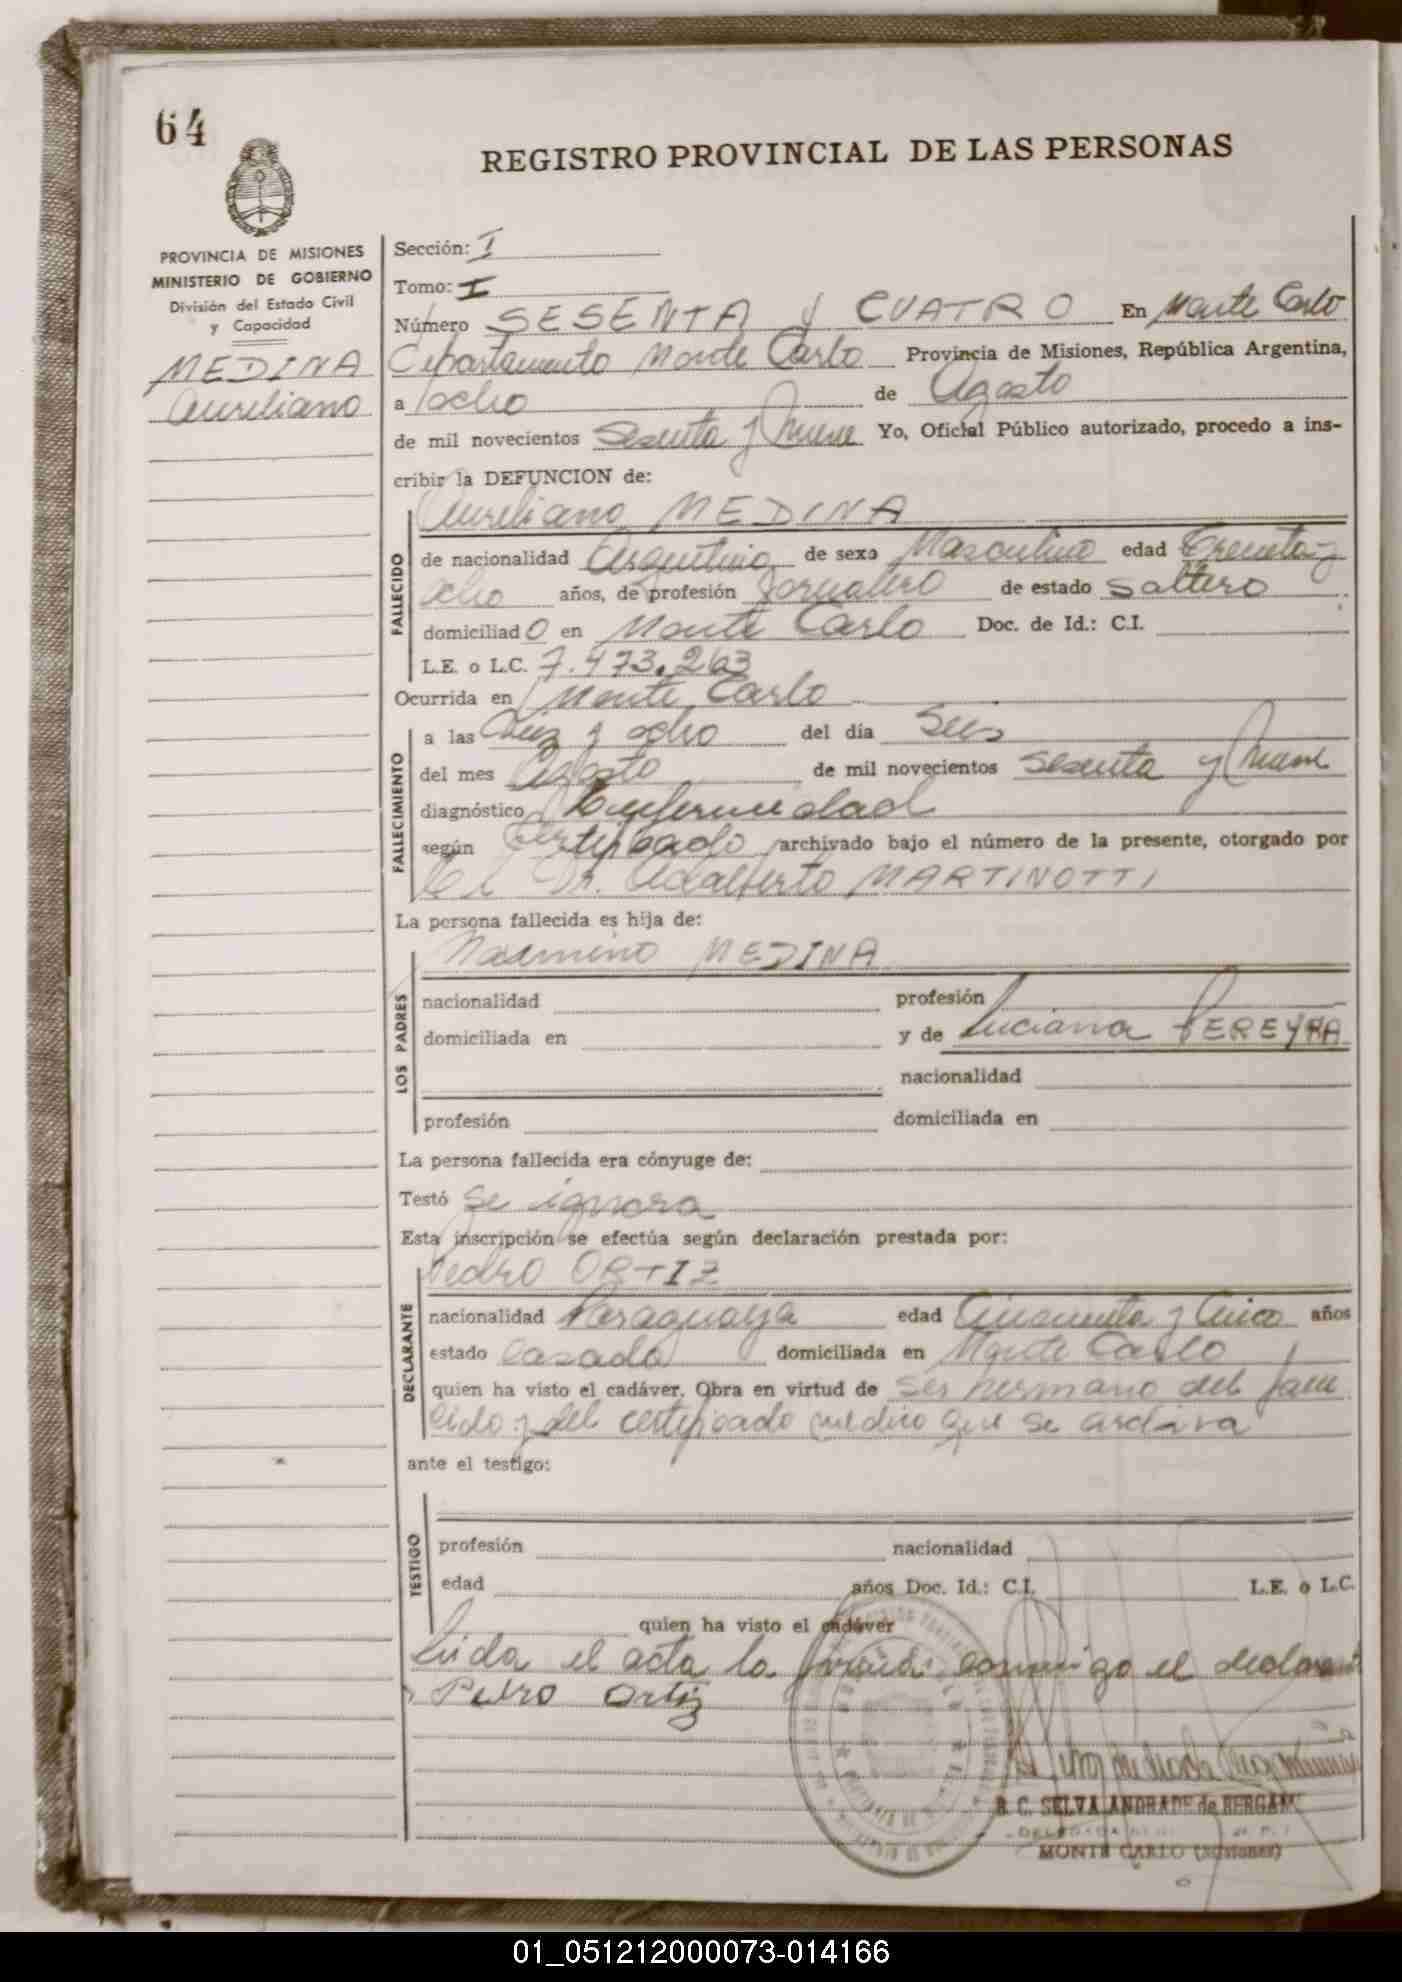 64
REGISTRO PROVINCIAL DE LAS PERSONAS
PROVINCIA DE MISIONES
MINISTERIO DE GOBIERNO
División del Estado Civil
y Capacidad
MEDINA
Aureliano
Sección: I
Tomo: I
Número SESENTA y CUATRO En Monte Carlo
Departamento Monte Carlo Provincia de Misiones, República Argentina,
a ocho de Agosto
de mil novecientos Sesenta y Nueve Yo, Oficial Público autorizado, procedo a ins-
cribir la DEFUNCION de:
Aureliano MEDINA
FALLECIDO
de nacionalidad Argentina de sexo Masculino edad Treinta y
ocho años, de profesión Jornalero de estado Soltero
domiciliado en Monte Carlo Doc. de Id.: C.I.
L.E. o L.C. 7.473.263
Ocurrida en Monte Carlo
FALLECIMIENTO
a las Diez y ocho del día Seis
del mes Agosto de mil novecientos Sesenta y Nueve
diagnóstico Enfermedad
según Certificado archivado bajo el número de la presente, otorgado por
el Dr. Adalberto MARTINOTTI
La persona fallecida es hija de:
MEDINA
LOS PADRES
nacionalidad profesión
domiciliada en y de Luciana PEREYRA
nacionalidad
profesión domiciliada en
La persona fallecida era cónyuge de:
Testó Se ignora
Esta inscripción se efectúa según declaración prestada por:
Pedro ORTIZ
DECLARANTE
nacionalidad Paraguaya edad Cincuenta y Cinco años
estado Casado domiciliada en Monte Carlo
quien ha visto el cadáver. Obra en virtud de ser hermano del falle
cido y del certificado medico que se archiva
ante el testigo:
TESTIGO
profesión nacionalidad
edad años Doc. Id.: C.I. L.E. o L.C.
quien ha visto el cadáver
Leida el acta la conmigo el declarante
Pedro Ortiz
R. C. SELVA ANDRADE de BERGAM
MONTE CARLO (Misiones)
01_051212000073-014166